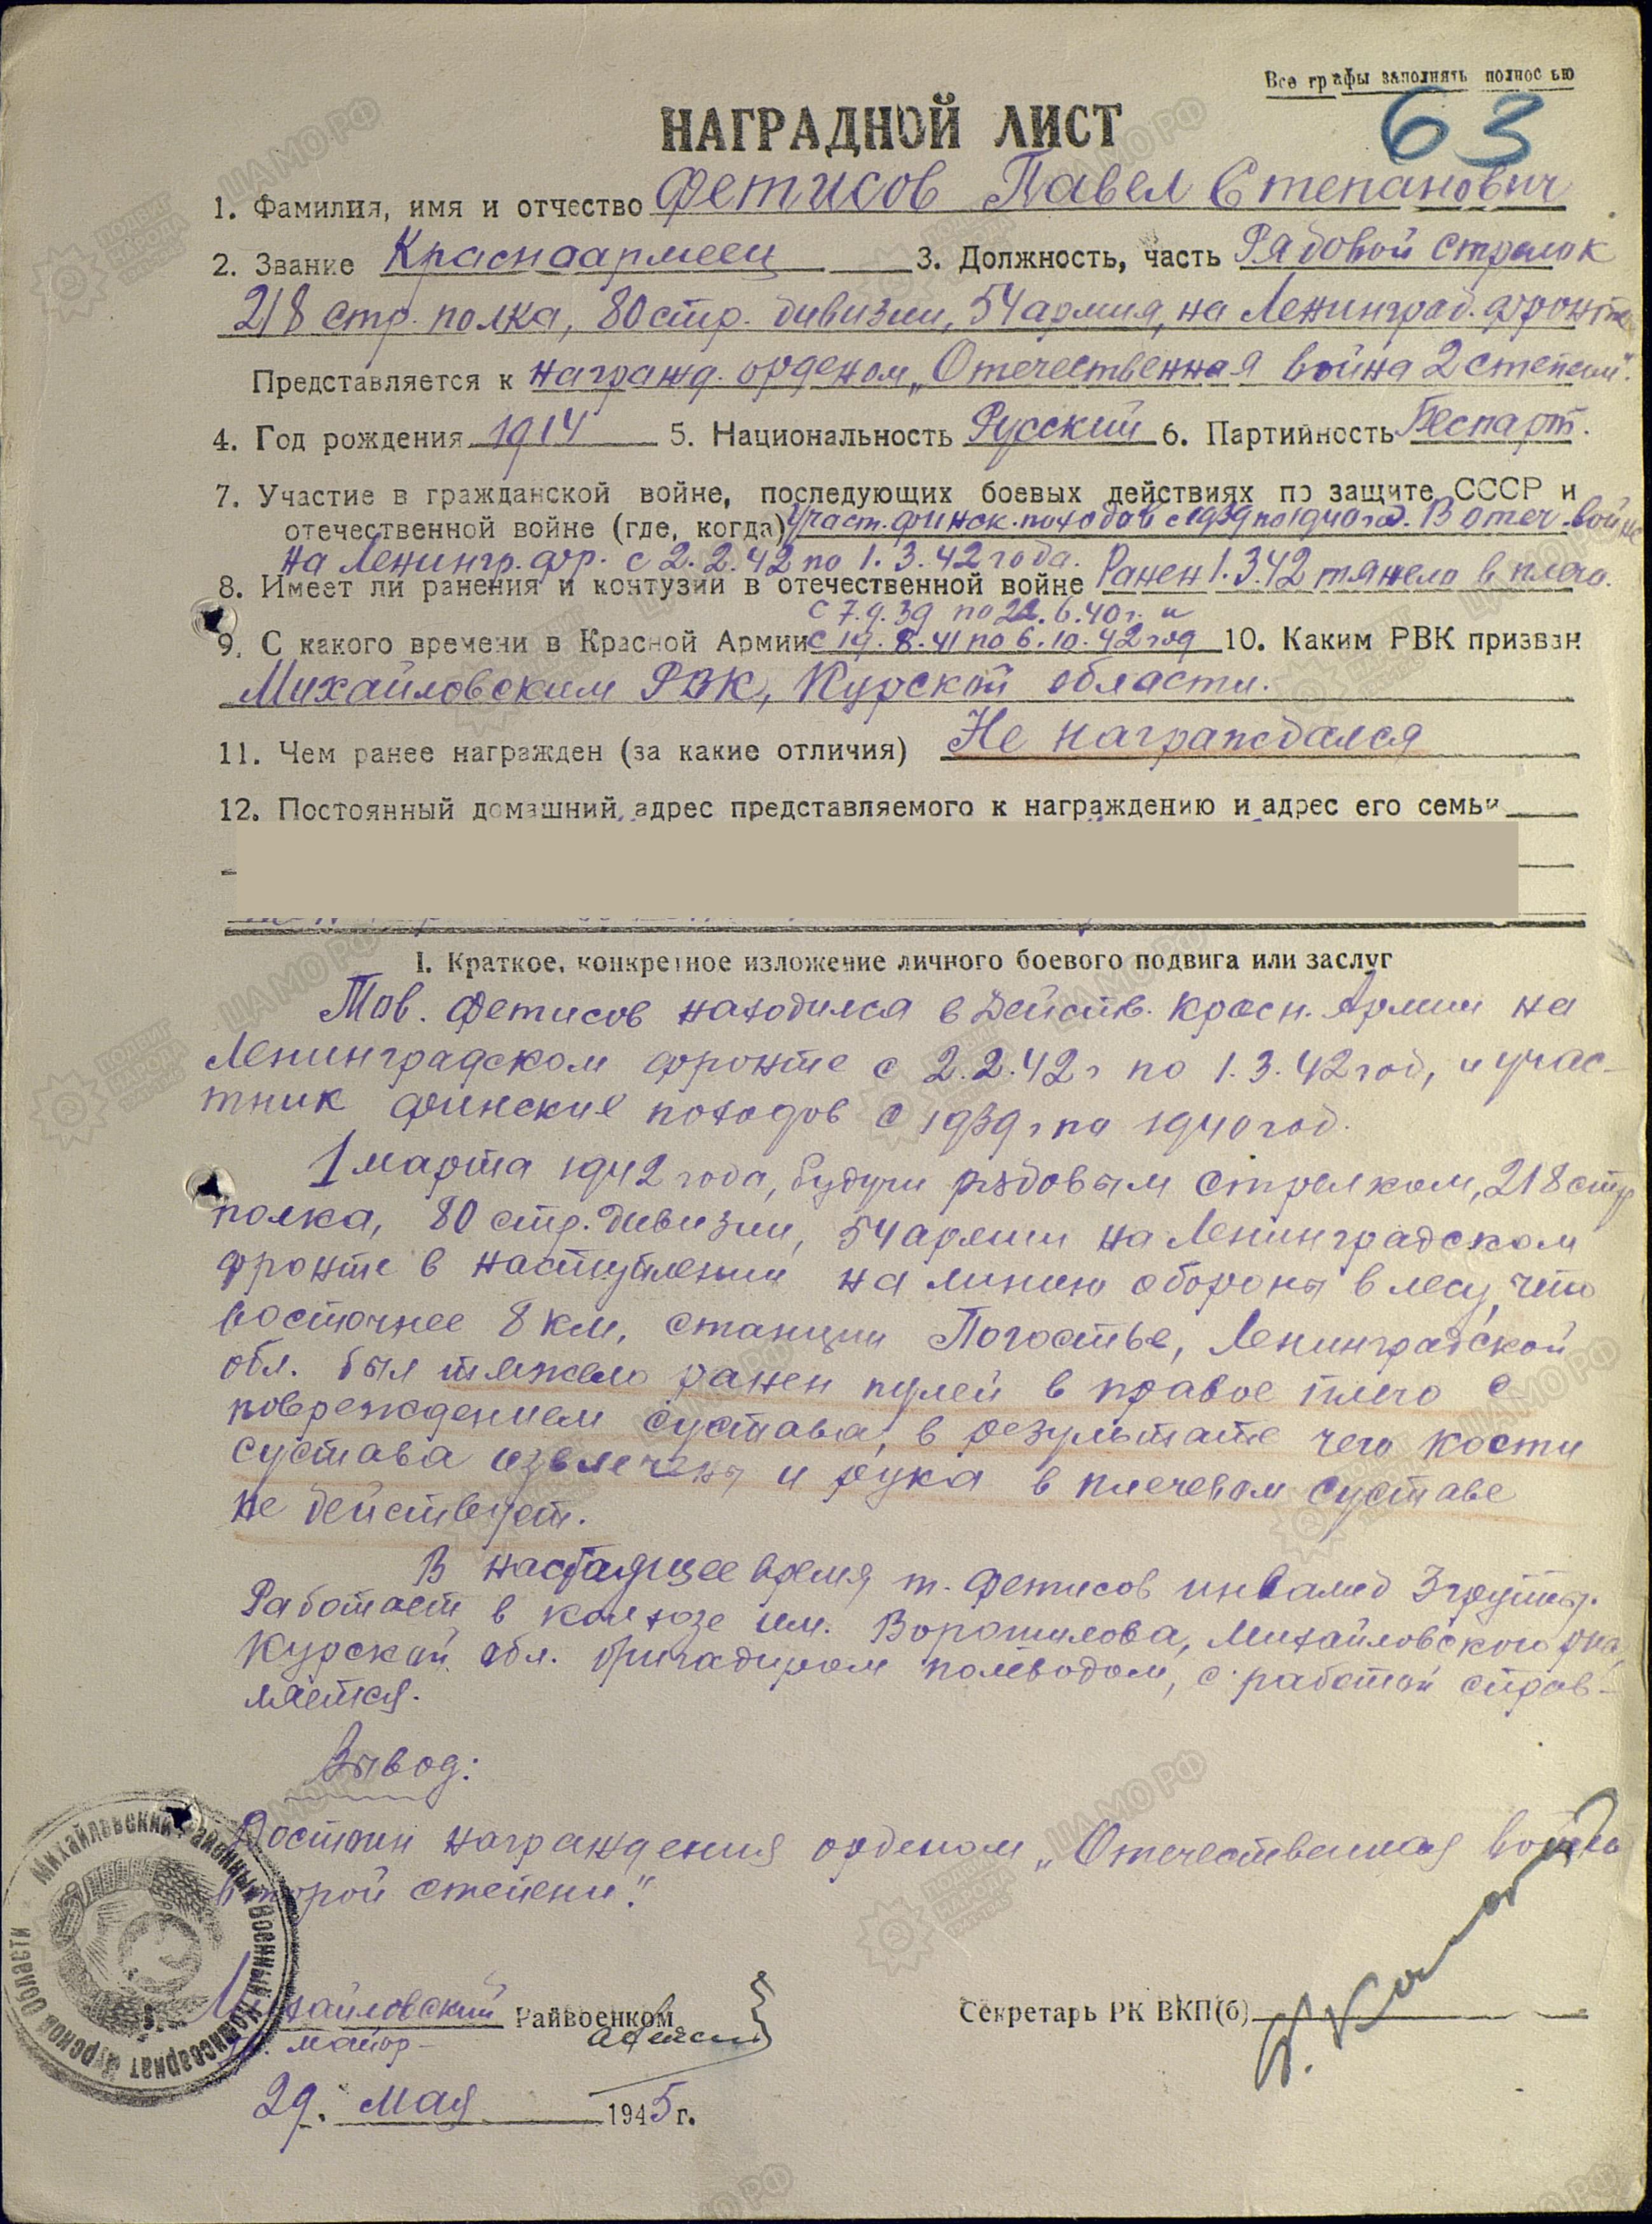 Все графы заполнять полностью
63
НАГРАДНОЙ ЛИСТ
1. Фамилия, имя и отчество Фетисов Павел Степанович
2. Звание Красноармеец 3. Должность, часть Рядовой стрелок
218 стр. полка, 80 стр. дивизии, 54 армия, на Ленинград. фронте
Представляется к награжд. орденом „Отечественная война 2 степени".
4. Год рождения 1914 5. Национальность Русский 6. Партийность Беспарт.
7. Участие в гражданской войне, последующих боевых действиях по защите СССР и
отечественной войне (где, когда) Участ. финск. походов с 1939 по 1940 год. В отеч. войне
на Ленингр. фр. с 2.2.42 по 1.3.42 года.
8. Имеет ли ранения и контузии в отечественной войне Ранен 1.3.42 тяжело в плечо.
с 7.9.39 по 22.6.40 г. и
9. С какого времени в Красной Армии с 19.8.41 по 6.10.42 год 10. Каким РВК призван
Михайловским РВК, Курской области.
11. Чем ранее награжден (за какие отличия) Не награждался
12. Постоянный домашний адрес представляемого к награждению и адрес его семьи
I. Краткое, конкретное изложение личного боевого подвига или заслуг
Тов. Фетисов находился в Действ. Красн. Армии на
Ленинградском фронте с 2.2.42 г по 1.3.42 год, и учас-
тник финских походов с 1939 г по 1940 год.
1 марта 1942 года, будучи рядовым стрелком, 218 стр
полка, 80 стр. дивизии, 54 армии на Ленинградском
фронте в наступлении на линию обороны в лесу, что
восточнее 8 км, станции Погостье, Ленинградской
обл. был тяжело ранен пулей в правое плечо с
повреждением сустава, в результате чего кости
сустава извлечены и рука в плечевом суставе
не действует.
В настоящее время т. Фетисов инвалид 3 группы.
Работает в колхозе им. Ворошилова, Михайловского р-на,
Курской обл. бригадиром полеводом, с работой справ-
ляется.
Вывод:
Достоин награждения орденом „Отечественная война
второй степени".
Михайловский Райвоенком
майор
Секретарь РК ВКП(б)
29. Мая 1945 г.
Михайловский Районный Военный Комиссариат Курской Области
ЦАМО РФ
ПОДВИГ НАРОДА